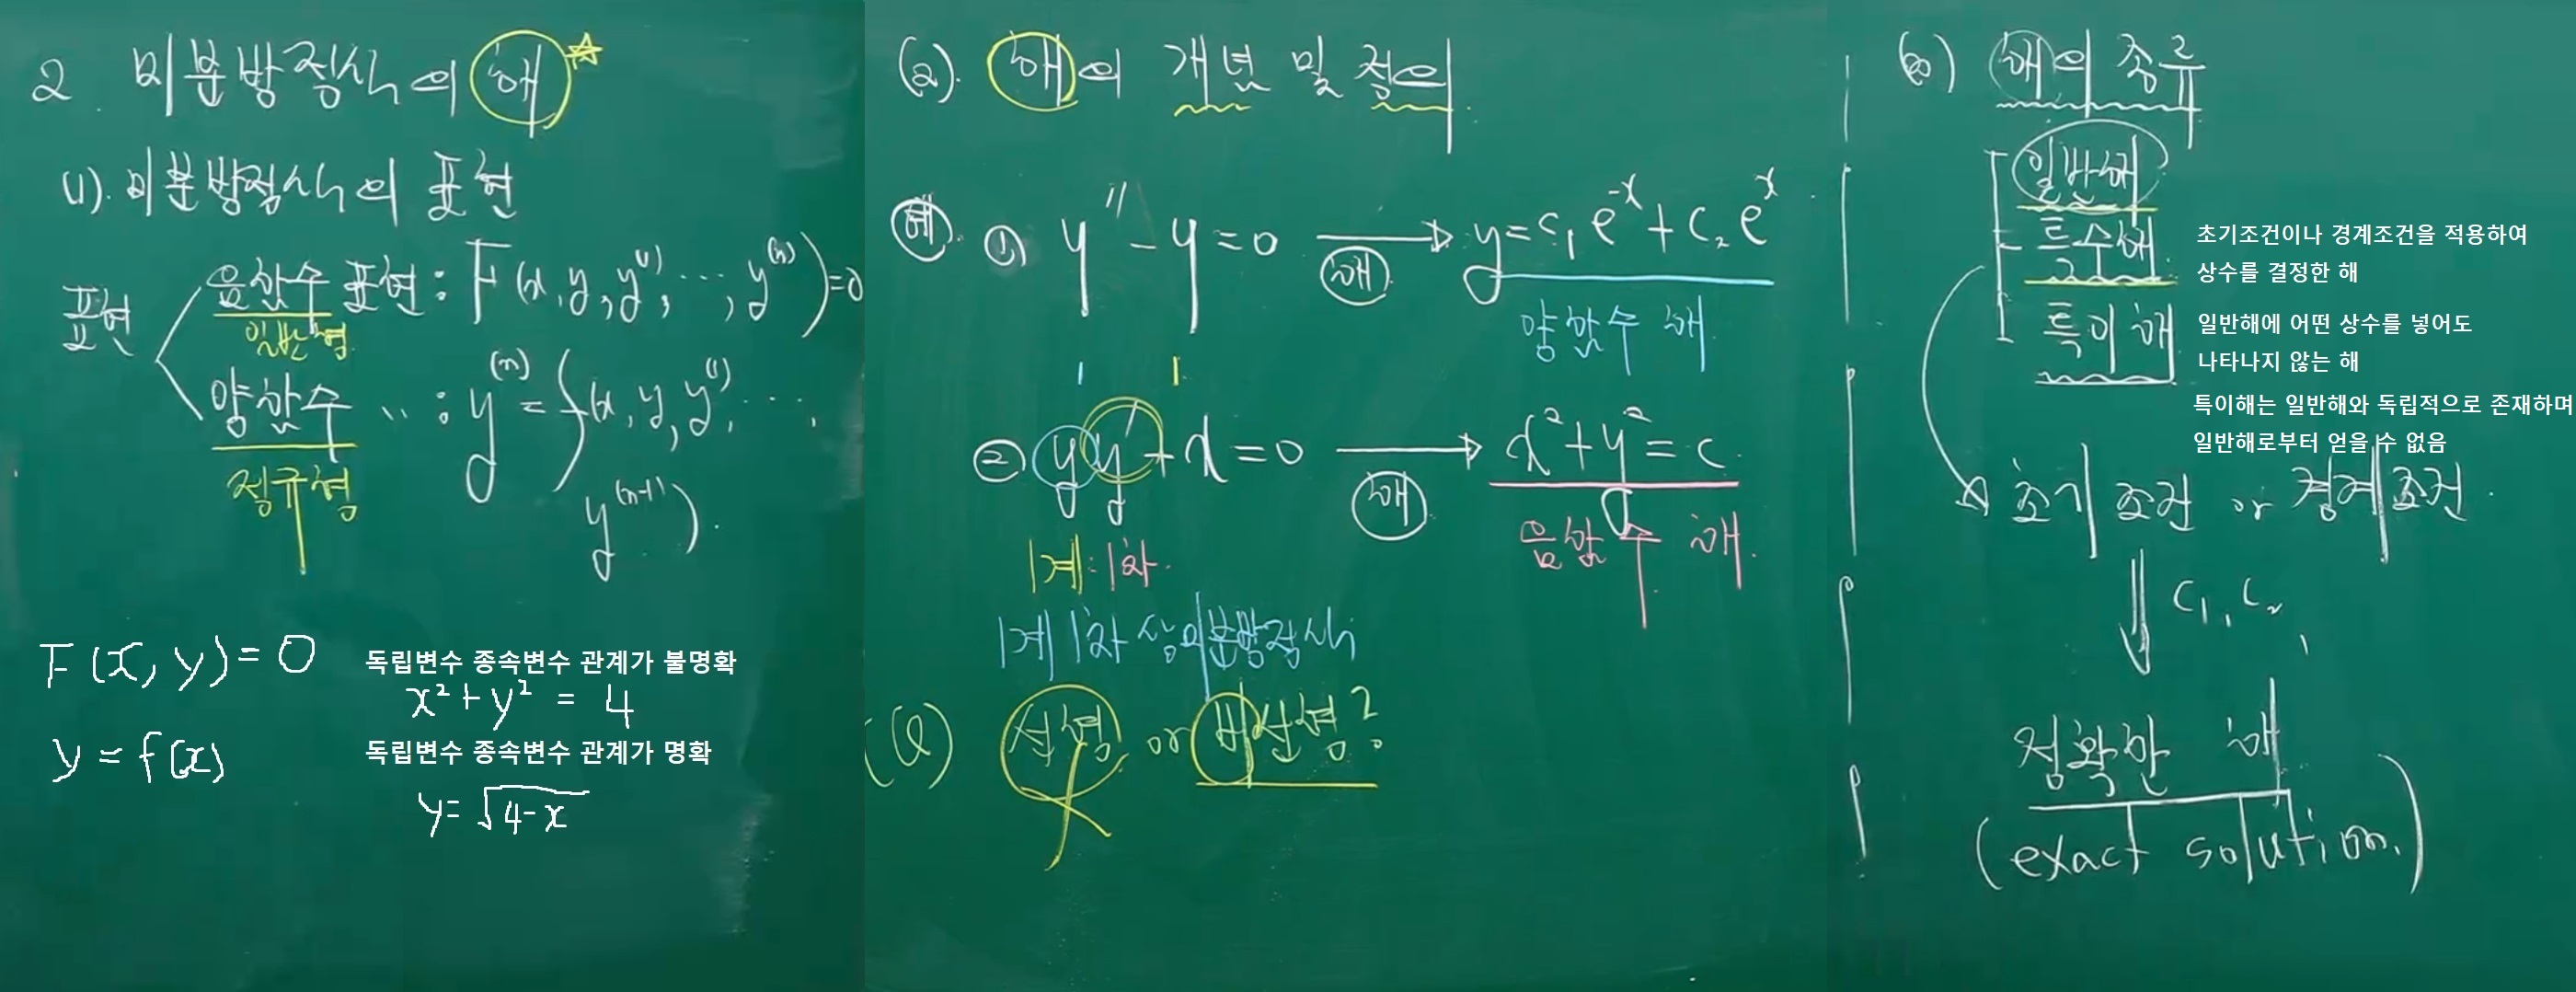 2. 미분방정식의 해☆
(1). 미분방정식의 표현
표현
음함수 표현 : F(x, y, y⁽¹⁾, ⋯, y⁽ⁿ⁾)=0
일반형
양함수 〃 : y⁽ⁿ⁾ = f(x, y, y⁽¹⁾, ⋯,
정규형
y⁽ⁿ⁻¹⁾).
F(x, y) = 0
독립변수 종속변수 관계가 불명확
x² + y² = 4
y = f(x)
독립변수 종속변수 관계가 명확
y = √4-x
(2). 해의 개념 및 정의
예. ① y″ - y = 0 → 해 y = c₁e⁻ˣ + c₂eˣ
양함수 해
1 1
② yy′ + x = 0 → 해 x² + y² = c.
음함수 해.
1계 : 1차.
1계 1차 상미분방정식
(Q) 선형 or 비선형?
(3) 해의 종류
일반해
특수해
초기조건이나 경계조건을 적용하여
상수를 결정한 해
특이해
일반해에 어떤 상수를 넣어도
나타나지 않는 해
특이해는 일반해와 독립적으로 존재하며
일반해로부터 얻을 수 없음
초기조건 or 경계조건.
⇓ c₁, c₂,
정확한 해
(exact solution.)